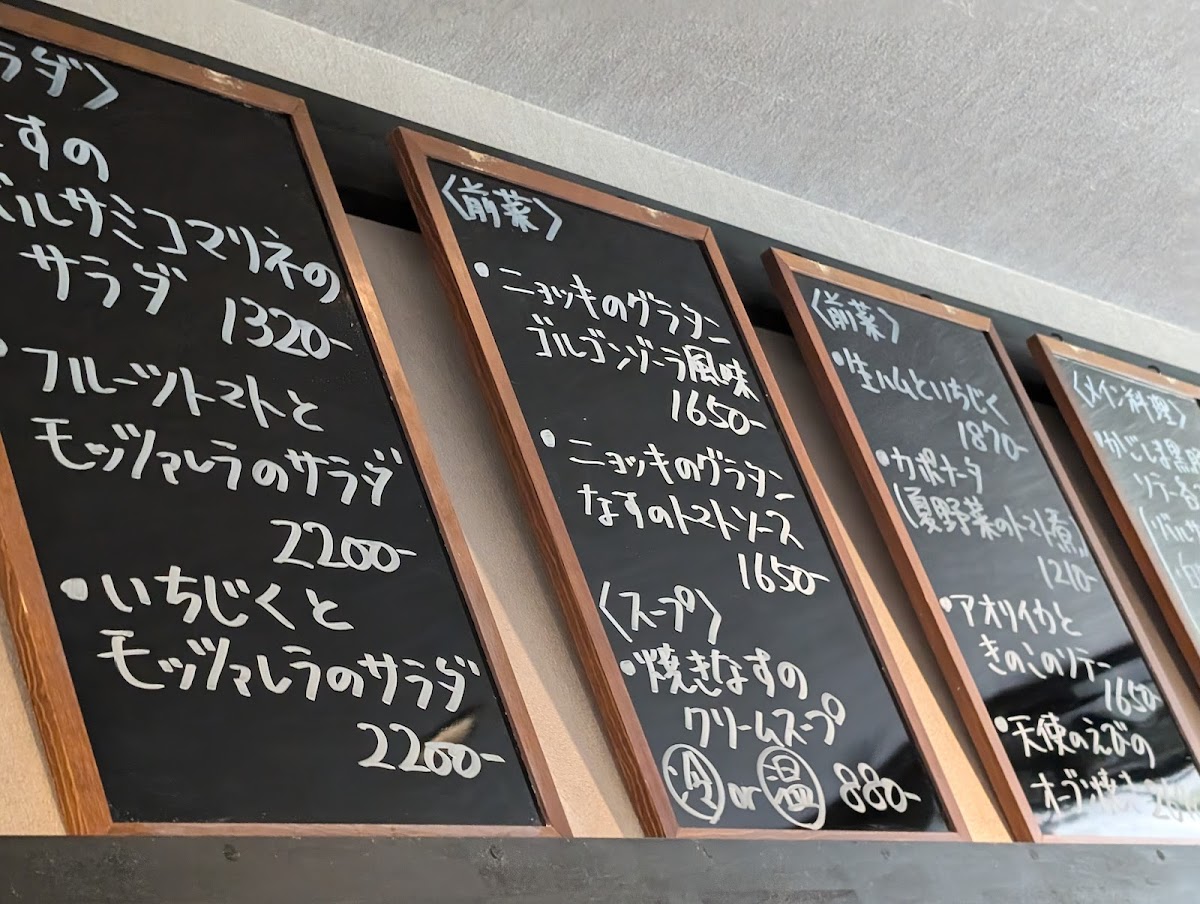 ラダ〉
すの
バルサミコマリネの
サラダ 1320-
•フルーツトマトと
モッツァレラのサラダ
2200-
•いちじくと
モッツァレラのサラダ
2200-
〈前菜〉
•ニョッキのグラタン
ゴルゴンゾーラ風味
1650-
•ニョッキのグラタン
なすのトマトソース
1650-
〈スープ〉
•焼きなすの
クリームスープ
冷 or 温 880-
〈前菜〉
•生ハムといちじく
1870-
•カポナータ
(夏野菜のトマト煮)
1210-
•アオリイカと
きのこのソテー
1650-
•天使のえびの
オーブン焼き
〈メイン料理〉
ソテー